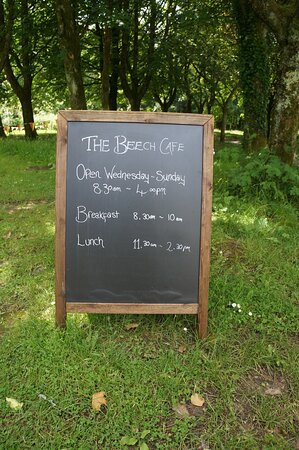 THE BEECH CAFE
Open Wednesday - Sunday
8.30am ~ 4.00pm
Breakfast 8.30am ~ 10am
Lunch 11.30am ~ 2.30pm